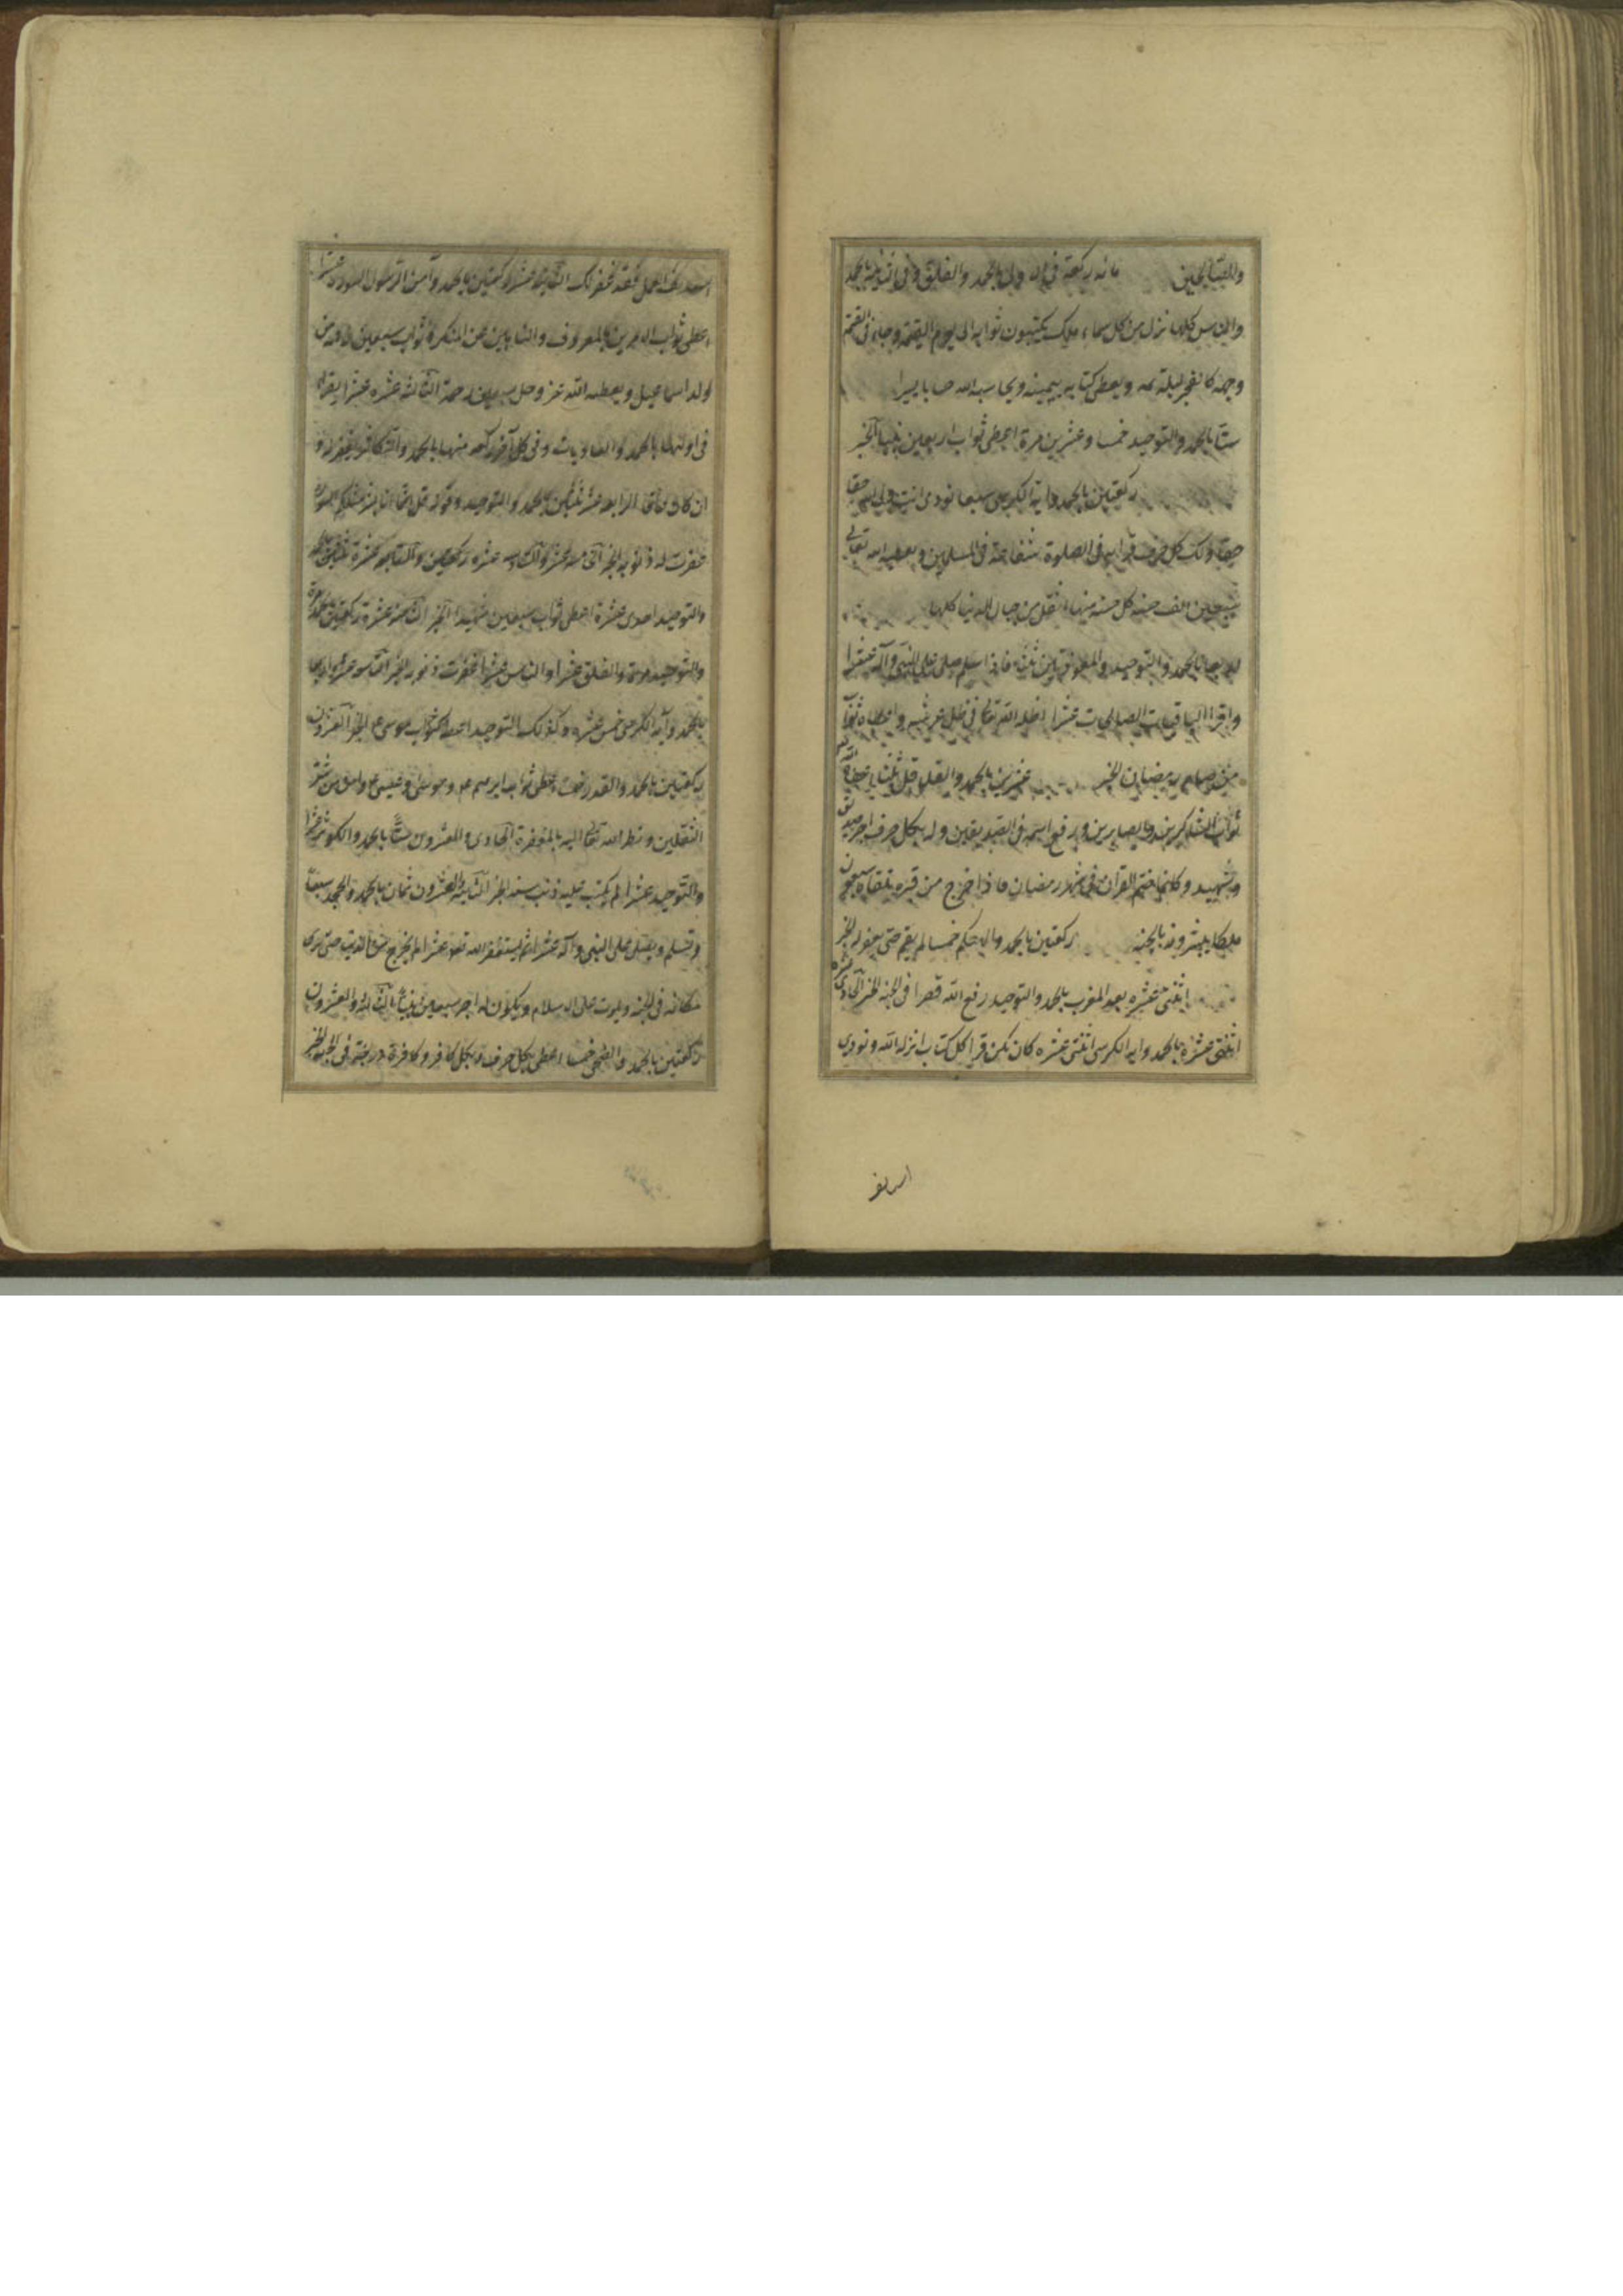 والمتقابلين مائة ركعة في الاولى بالحمد والفلق وفي الثانية بالحمد
والناس كلها نزل من كل سماء ملك يكتبون ثوابه الى يوم القيمة وجاء في القيمة
وجهه كالقمر ليلة تمه ويعطى كتابه بيمينه ويحاسبه الله حسابا يسيرا
ستا بالحمد والتوحيد خمسا وعشرين مرة اعطى ثواب اربعين نبيا الخبر
ركعتين بالحمد واية الكرسي سبعا نودى انت ولى الله حقا
حقا ولك بكل حرف قراته في الصلوة شفاعة في المسلمين ويعطيه الله تعالى
سبعين الف حسنة كل حسنة منها اثقل من جبال الدنيا كلها
اربعا بالحمد والتوحيد والمعوذتين ثلثا فاذا سلم صلى على النبي وآله عشرا
واقرا الباقيات الصالحات عشرا اظله الله تعالى في ظل عرشه واعطاه ثواب
من صام رمضان الخبر عشرين بالحمد والقدر ثلثا اعطاه الله
ثواب الشاكرين والصابرين ورفع اسمه في الصديقين وله بكل حرف اجر صديق
وشهيد وكانما ختم القران في شهر رمضان فاذا خرج من قبره تلقاه سبعون
ملكا يبشرونه بالجنة ركعتين بالحمد والهيكم خمسا لم يقم حتى يغفر له الخبر
اثنتى عشره بعد المغرب بالحمد والتوحيد رفع الله قصرا في الجنة الخبر الحادى عشره
اثنتى عشرة بالحمد واية الكرسي اثنتى عشره كان كمن قرا كل كتاب انزله الله ونودى
استانف
استانف العمل فقد غفر لك الثانية عشر ركعتين بالحمد وآمن الرسول السورة عشرا
اعطى ثواب الامرين بالمعروف والناهين عن المنكر وثواب سبعين رقبة من
ولد اسماعيل ويعطيه الله عز وجل سبعين رحمة الثالثة عشره عشرا يقرا
في اولها بالحمد والعاديات وفي كل آخر ركعة منها بالحمد والتكاثر غفر له و
ان كان عاقا الرابعة عشر ثلثين بالحمد والتوحيد وقوله قل انما انا بشر مثلكم السورة
غفرت له ذنوبه الخبر الخامسة عشر والسادسة عشره والسابعة عشرة ثلثين بالحمد
والتوحيد احدى عشرة اعطى ثواب سبعين شهيدا الخبر الثامنة عشرة ركعتين بالحمد مرة
والتوحيد مرة والفلق عشرا والناس عشرا غفرت ذنوبه الخبر التاسعة عشرة اربعا
بالحمد وآية الكرسي خمس عشره وكذلك التوحيد اعطى كثواب موسى ع الخبر العشرون
ركعتين بالحمد والقدر خمسا اعطى ثواب ابراهيم ع وموسى وعيسى ع وامن من شر
الثقلين ونظر الله تعالى اليه بالمغفرة الحادى والعشرون ستًّا بالحمد والكوثر عشرا
والتوحيد عشرا لم يكتب عليه ذنب سنة الخبر الثانية والعشرون ثمان بالحمد والجحد سبعا
وتسلم ويصلى على النبي وآله عشرا ثم يستغفر الله تعالى عشرا لم يخرج من الدنيا حتى يرى
مكانه في الجنة ويموت على الاسلام ويكون له اجر سبعين نبيا الثالثة والعشرون
ركعتين بالحمد والضحى خمسا اعطى بكل حرف وبكل كافر وكافرة درجة في الجنة الخبر